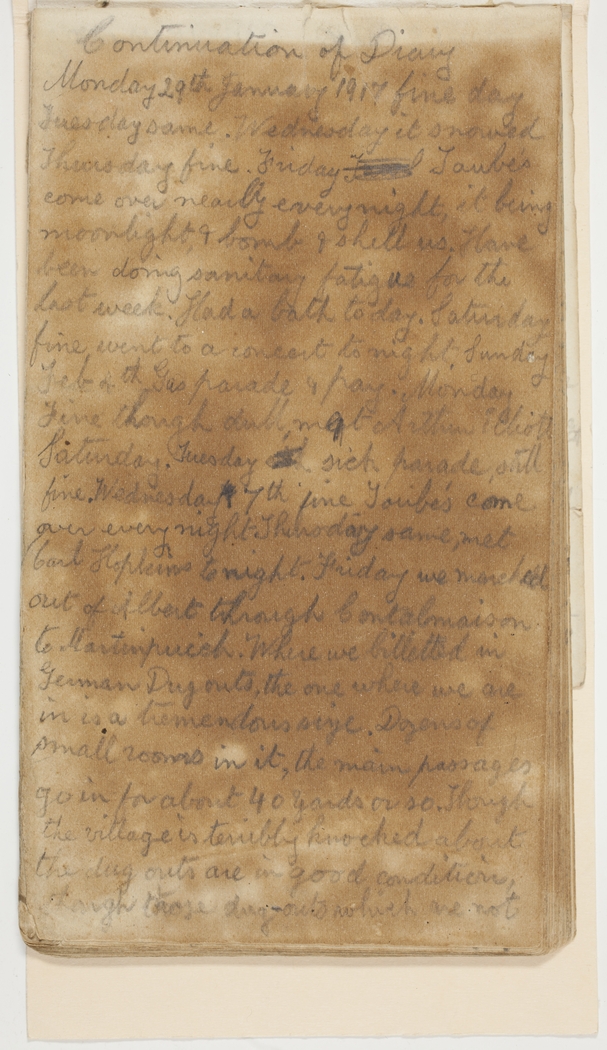 Continuation of Diary
Monday 29th January 1917 fine day
Tuesday same. Wednesday it snowed
Thursday fine. Friday Taube's
come over nearly every night, it being
moonlight, & bomb & shell us. Have
been doing sanitary fatigue for the
last week. Had a bath to day. Saturday
fine went to a concert to night. Sunday
Feb 4th Gas parade & pay. Monday
Fine though dull, met Arthur Elliott
Saturday. Tuesday sick parade, still
fine. Wednesday 7th fine Taube's come
over every night Thursday same, met
Carl Hopkins tnight. Friday we marched
out of Albert through Contalmaison
to Martinpuich. Where we billetted in
German Dug outs, the one where we are
in is a tremendous size. Dozens of
small rooms in it, the main passages
go in for about 40 yards or so. Though
the village is terribly knocked about
the dug outs are in good condition,
though those dug-outs which are not